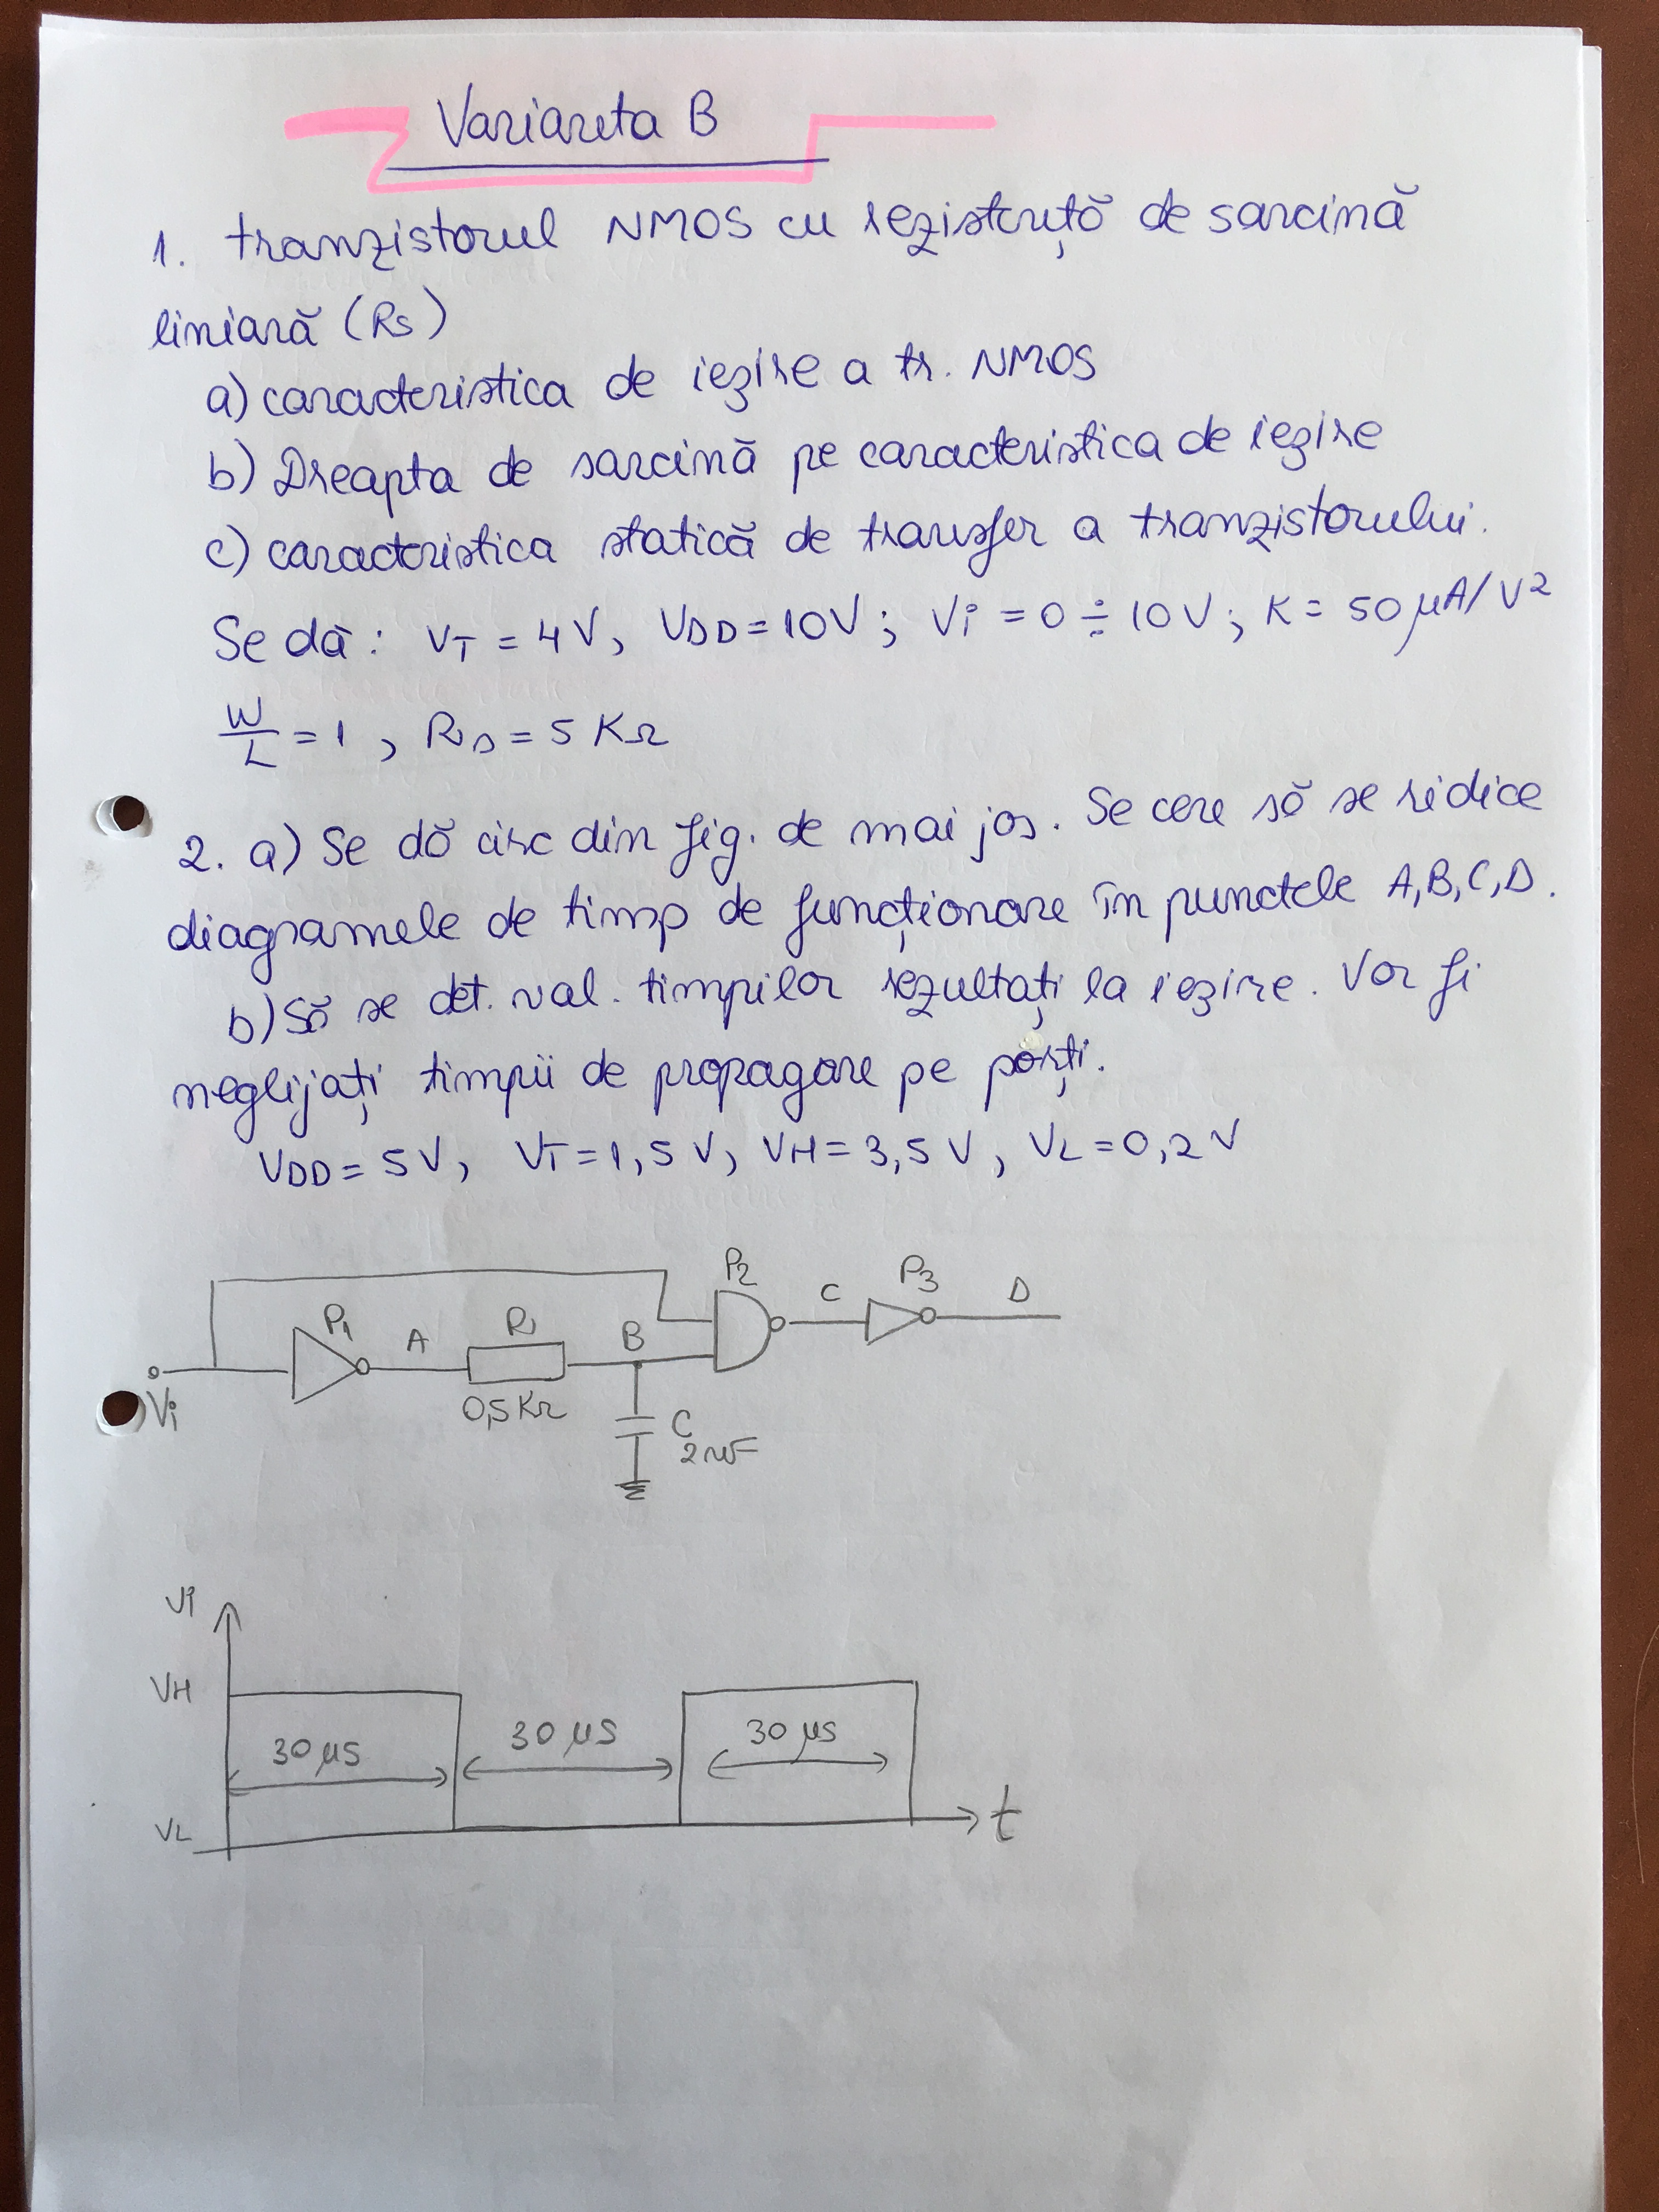 Varianta B
1. tranzistorul NMOS cu rezistență de sarcină
liniară (Rs)
a) caracteristica de ieșire a tr. NMOS
b) Dreapta de sarcină pe caracteristica de ieșire
c) caracteristica statică de transfer a tranzistorului.
Se dă: VT = 4V, VDD = 10V; Vi = 0 ÷ 10V; K = 50 μA/V²
W/L = 1, RD = 5 KΩ
2. a) Se dă circ din fig. de mai jos. Se cere să se ridice
diagramele de timp de funcționare în punctele A,B,C,D.
b) Să se det. val. timpilor rezultați la ieșire. Vor fi
neglijați timpii de propagare pe porți.
VDD = 5V, VT = 1,5 V, VH = 3,5 V, VL = 0,2 V
P2
P1 A R B C P3 D
Vi 0,5KΩ C
2nF
Vi
VH
30 μs 30 μs 30 μs
VL t